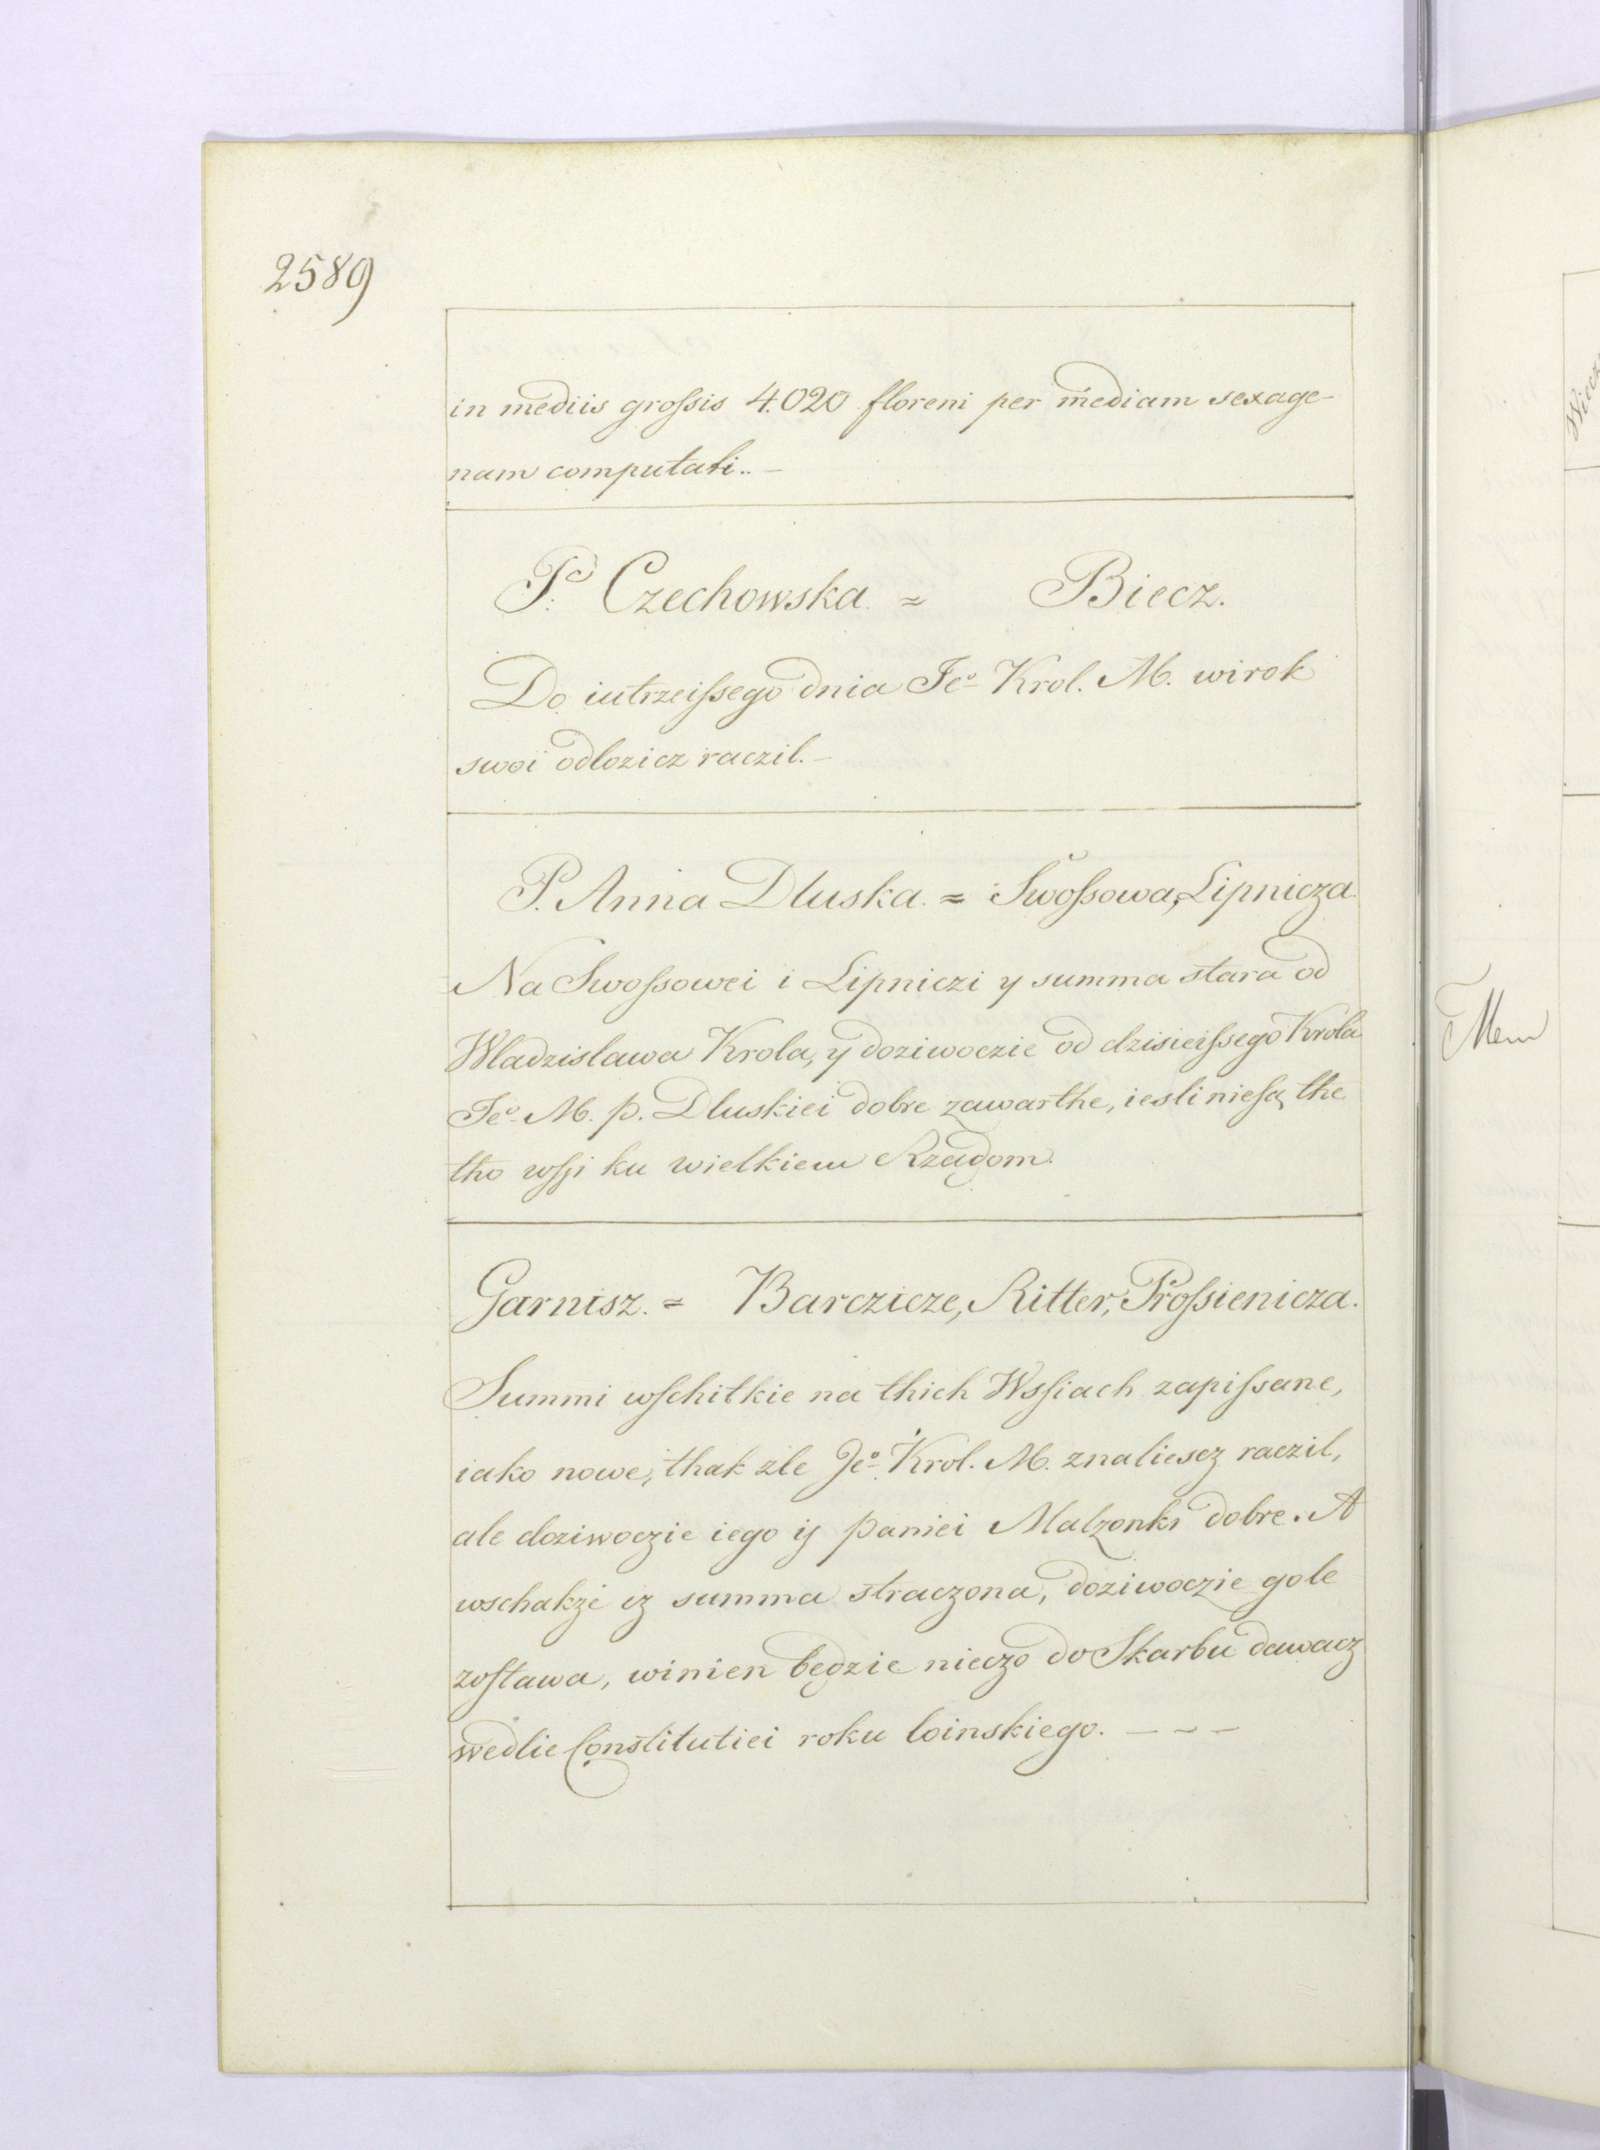 2589
in mediis grossis 4020 floreni per mediam sexage-
nam computati..–
P. Czechowska. = Biecz.
Do iutrzeissego dnia Jeº Krol. M. wirok
swoi odlozicz raczil.–
P. Anna Dluska. = Swossowa, Lipnicza.
Na Swossowei i Lipniczi y summa stara od
Wladzislawa Krola, y doziwoczie od dzisieissego Krola
Jeº M. p. Dluskiei dobre zawarthe, iesli niesą the
tho wssi ku wielkiem Rządom.
Garnisz. = Barczicze, Ritter, Prossienicza.
Summi wschitkie na thich Wssiach zapissane,
iako nowe, thak zle Jeº Krol. M. znaliescz raczil,
ale doziwoczie iego ij paniei Malzonki dobre. A
wschakże iz summa straczona, doziwoczie gole
zostawa, winien będzie nieczo do Skarbu dawacz
wedlie Constitutiei roku loinskiego. – – –
Mem